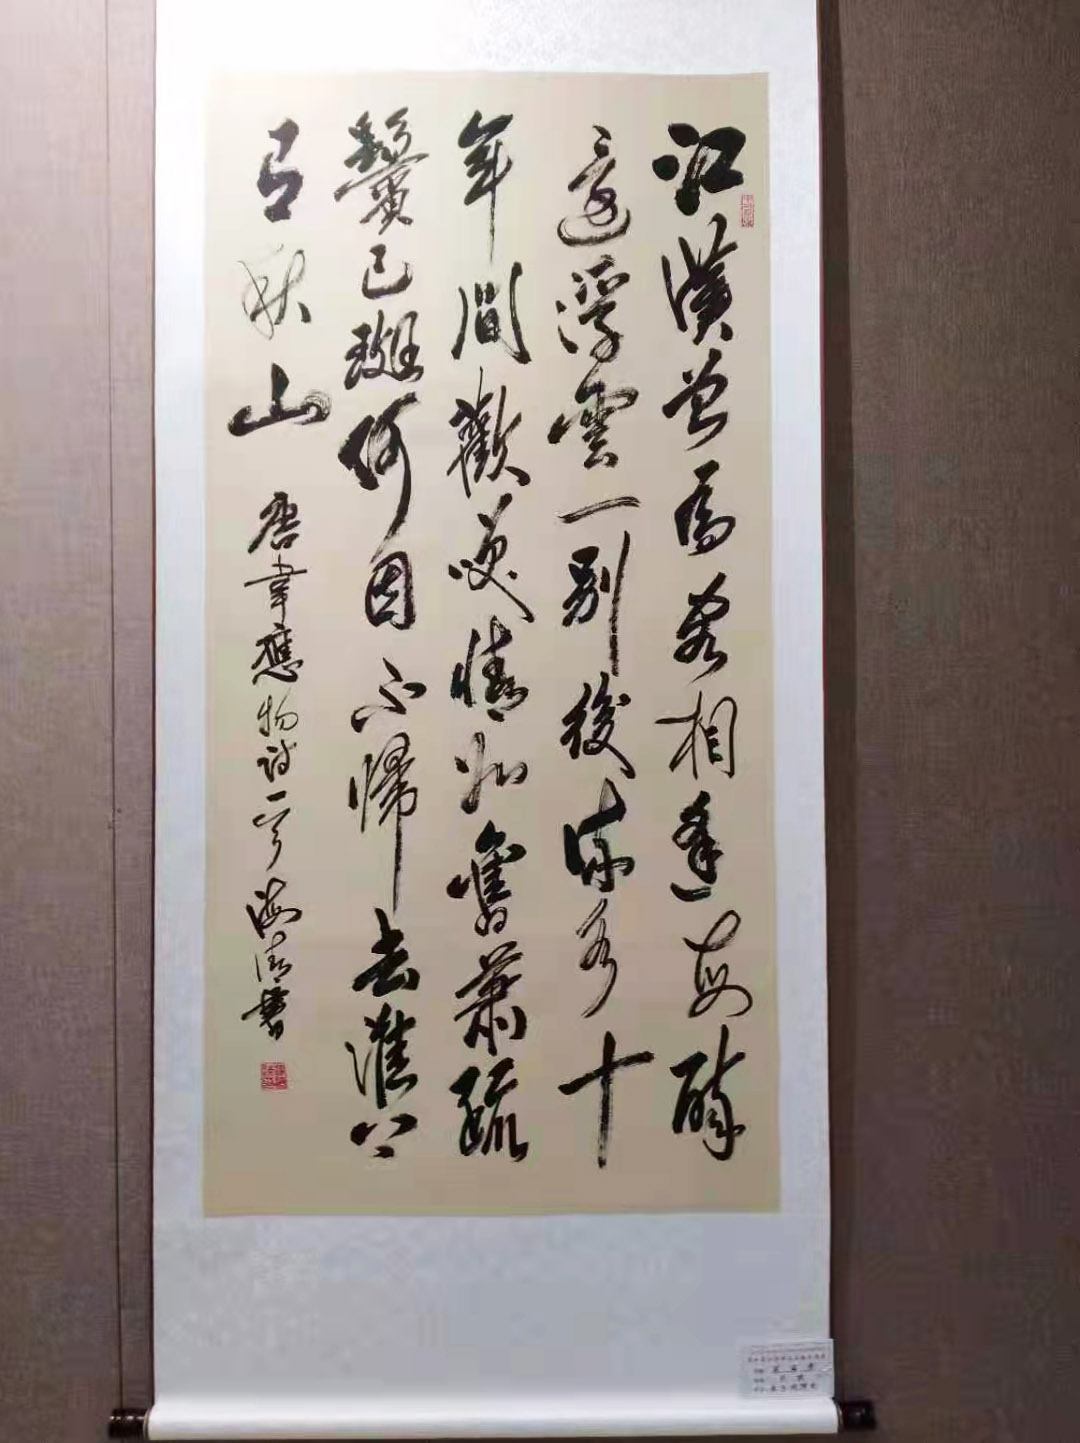 江漢曾為客相逢每醉
還浮雲一別後流水十
年間歡咲情如舊蕭疏
鬢已斑何因不歸去淮上
有秋山
唐韋應物詩一首海清書